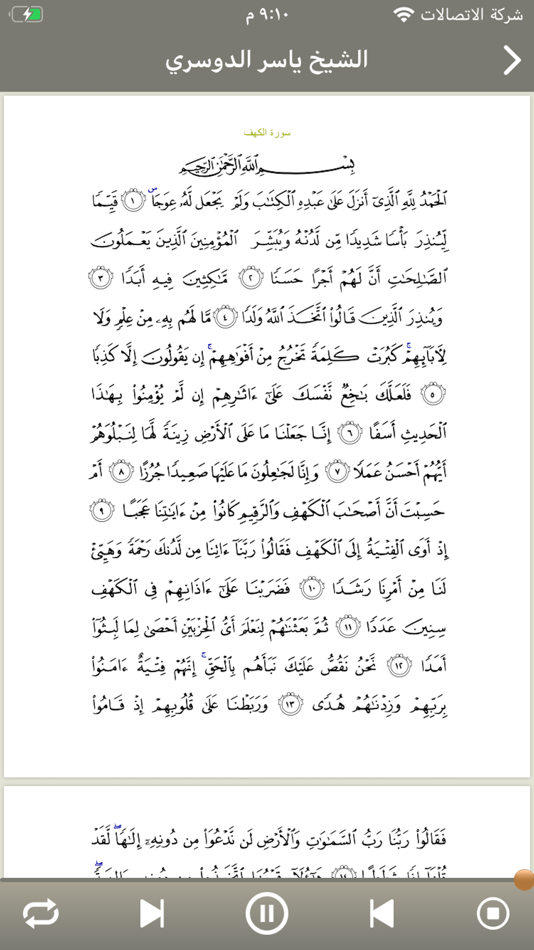 شركة الاتصالات ٩:١٠ م
الشيخ ياسر الدوسري
سورة الكهف
بِسْمِ اللَّهِ الرَّحْمَٰنِ الرَّحِيمِ
الْحَمْدُ لِلَّهِ الَّذِي أَنزَلَ عَلَىٰ عَبْدِهِ الْكِتَابَ وَلَمْ يَجْعَل لَّهُ عِوَجًا ۜ ١ قَيِّمًا
لِّيُنذِرَ بَأْسًا شَدِيدًا مِّن لَّدُنْهُ وَيُبَشِّرَ الْمُؤْمِنِينَ الَّذِينَ يَعْمَلُونَ
الصَّالِحَاتِ أَنَّ لَهُمْ أَجْرًا حَسَنًا ٢ مَّاكِثِينَ فِيهِ أَبَدًا ٣
وَيُنذِرَ الَّذِينَ قَالُوا اتَّخَذَ اللَّهُ وَلَدًا ٤ مَّا لَهُم بِهِ مِنْ عِلْمٍ وَلَا
لِآبَائِهِمْ ۚ كَبُرَتْ كَلِمَةً تَخْرُجُ مِنْ أَفْوَاهِهِمْ ۚ إِن يَقُولُونَ إِلَّا كَذِبًا
٥ فَلَعَلَّكَ بَاخِعٌ نَّفْسَكَ عَلَىٰ آثَارِهِمْ إِن لَّمْ يُؤْمِنُوا بِهَٰذَا
الْحَدِيثِ أَسَفًا ٦ إِنَّا جَعَلْنَا مَا عَلَى الْأَرْضِ زِينَةً لَّهَا لِنَبْلُوَهُمْ
أَيُّهُمْ أَحْسَنُ عَمَلًا ٧ وَإِنَّا لَجَاعِلُونَ مَا عَلَيْهَا صَعِيدًا جُرُزًا ٨ أَمْ
حَسِبْتَ أَنَّ أَصْحَابَ الْكَهْفِ وَالرَّقِيمِ كَانُوا مِنْ آيَاتِنَا عَجَبًا ٩
إِذْ أَوَى الْفِتْيَةُ إِلَى الْكَهْفِ فَقَالُوا رَبَّنَا آتِنَا مِن لَّدُنكَ رَحْمَةً وَهَيِّئْ
لَنَا مِنْ أَمْرِنَا رَشَدًا ١٠ فَضَرَبْنَا عَلَىٰ آذَانِهِمْ فِي الْكَهْفِ
سِنِينَ عَدَدًا ١١ ثُمَّ بَعَثْنَاهُمْ لِنَعْلَمَ أَيُّ الْحِزْبَيْنِ أَحْصَىٰ لِمَا لَبِثُوا
أَمَدًا ١٢ نَّحْنُ نَقُصُّ عَلَيْكَ نَبَأَهُم بِالْحَقِّ ۚ إِنَّهُمْ فِتْيَةٌ آمَنُوا
بِرَبِّهِمْ وَزِدْنَاهُمْ هُدًى ١٣ وَرَبَطْنَا عَلَىٰ قُلُوبِهِمْ إِذْ قَامُوا
فَقَالُوا رَبُّنَا رَبُّ السَّمَاوَاتِ وَالْأَرْضِ لَن نَّدْعُوَ مِن دُونِهِ إِلَٰهًا ۖ لَّقَدْ